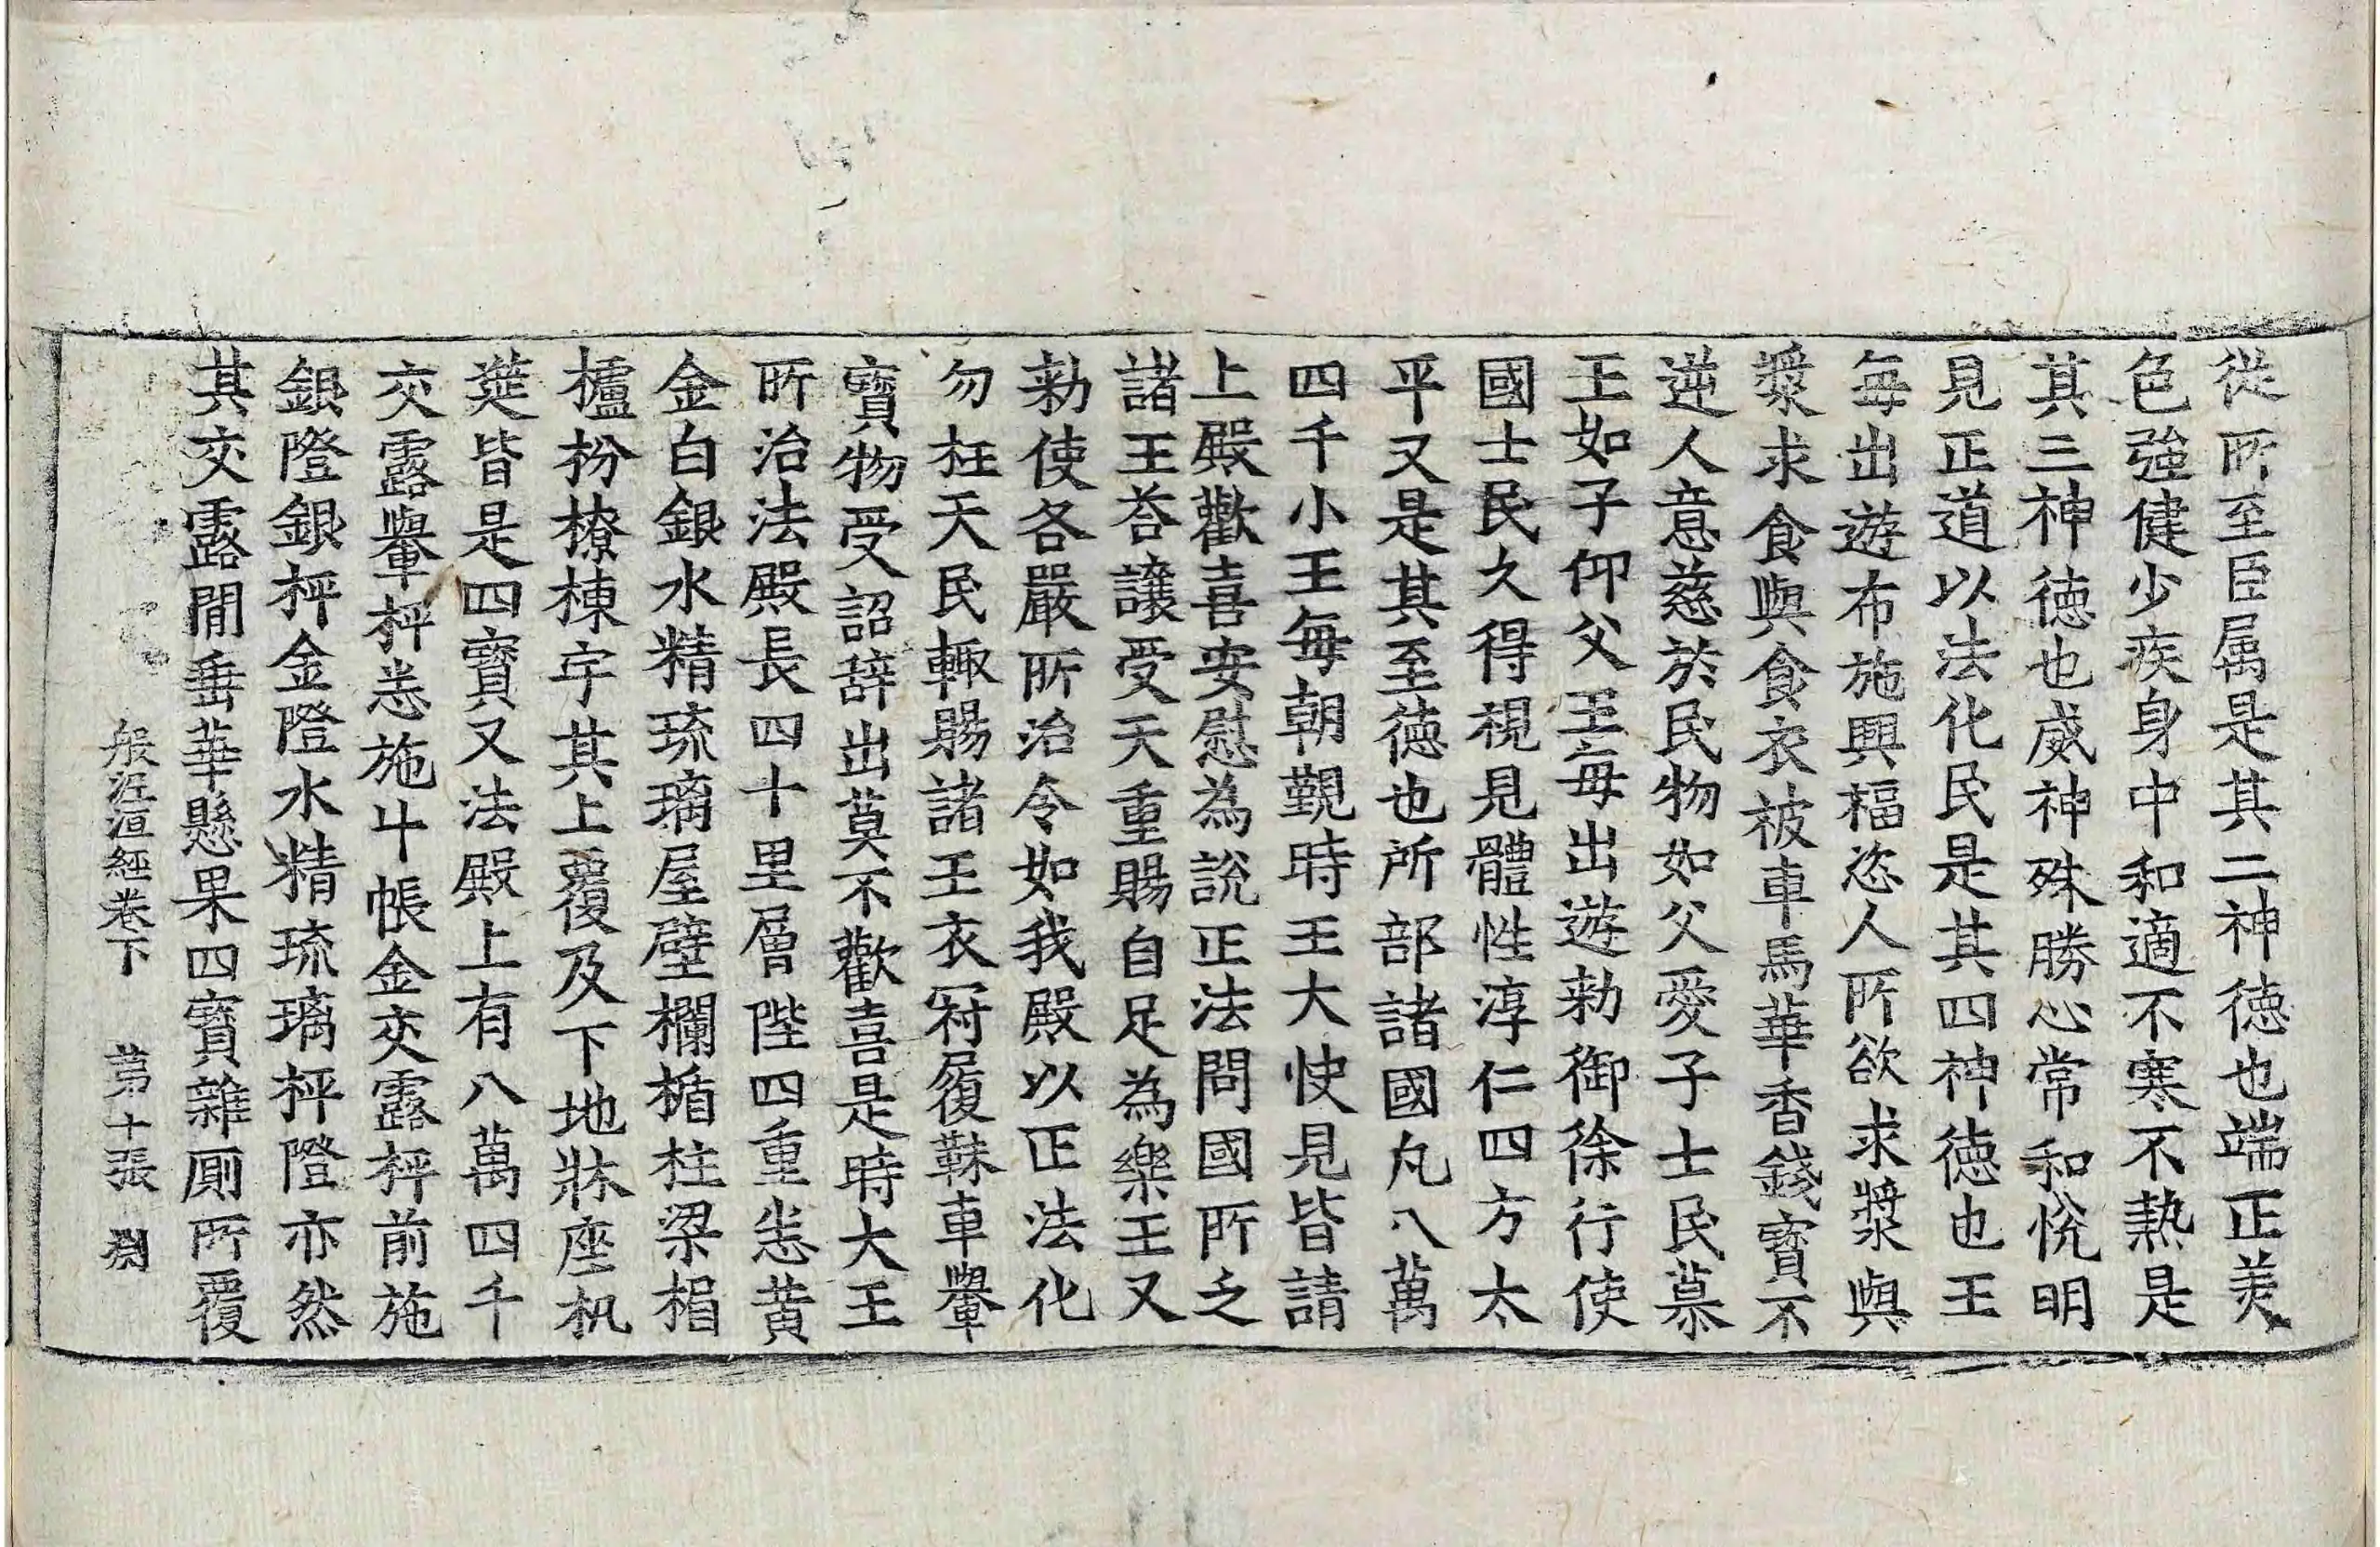 從所至臣属是其二神德也端正美
色強健少疾身中和適不寒不熱是
其三神德也威神殊勝心常和悅明
見正道以法化民是其四神德也王
每出遊布施興福恣人所欲求漿與
漿求食與食衣被車馬華香錢寶不
逆人意慈於民物如父愛子士民慕
王如子仰父王每出遊勑御徐行使
國士民久得視見體性淳仁四方太
平又是其至德也所部諸國凡八萬
四千小王每朝覲時王大快見皆請
上殿歡喜安慰為說正法問國所乏
諸王荅讓受天重賜自足為樂王又
勑使各嚴所治令如我殿以正法化
勿枉天民輙賜諸王衣冠履韈車轝
寶物受詔辞出莫不歡喜是時大王
所治法殿長四十里層陛四重悉黃
金白銀水精琉璃屋壁欄楯柱梁榻
櫨枌橑棟宇其上覆及下地牀座机
莚皆是四寶又法殿上有八萬四千
交露轝枰悉施斗帳金交露枰前施
銀隥銀枰金隥水精琉璃枰隥亦然
其交露間垂華懸果四寶雜厠所覆
般泥洹經卷下 第十張